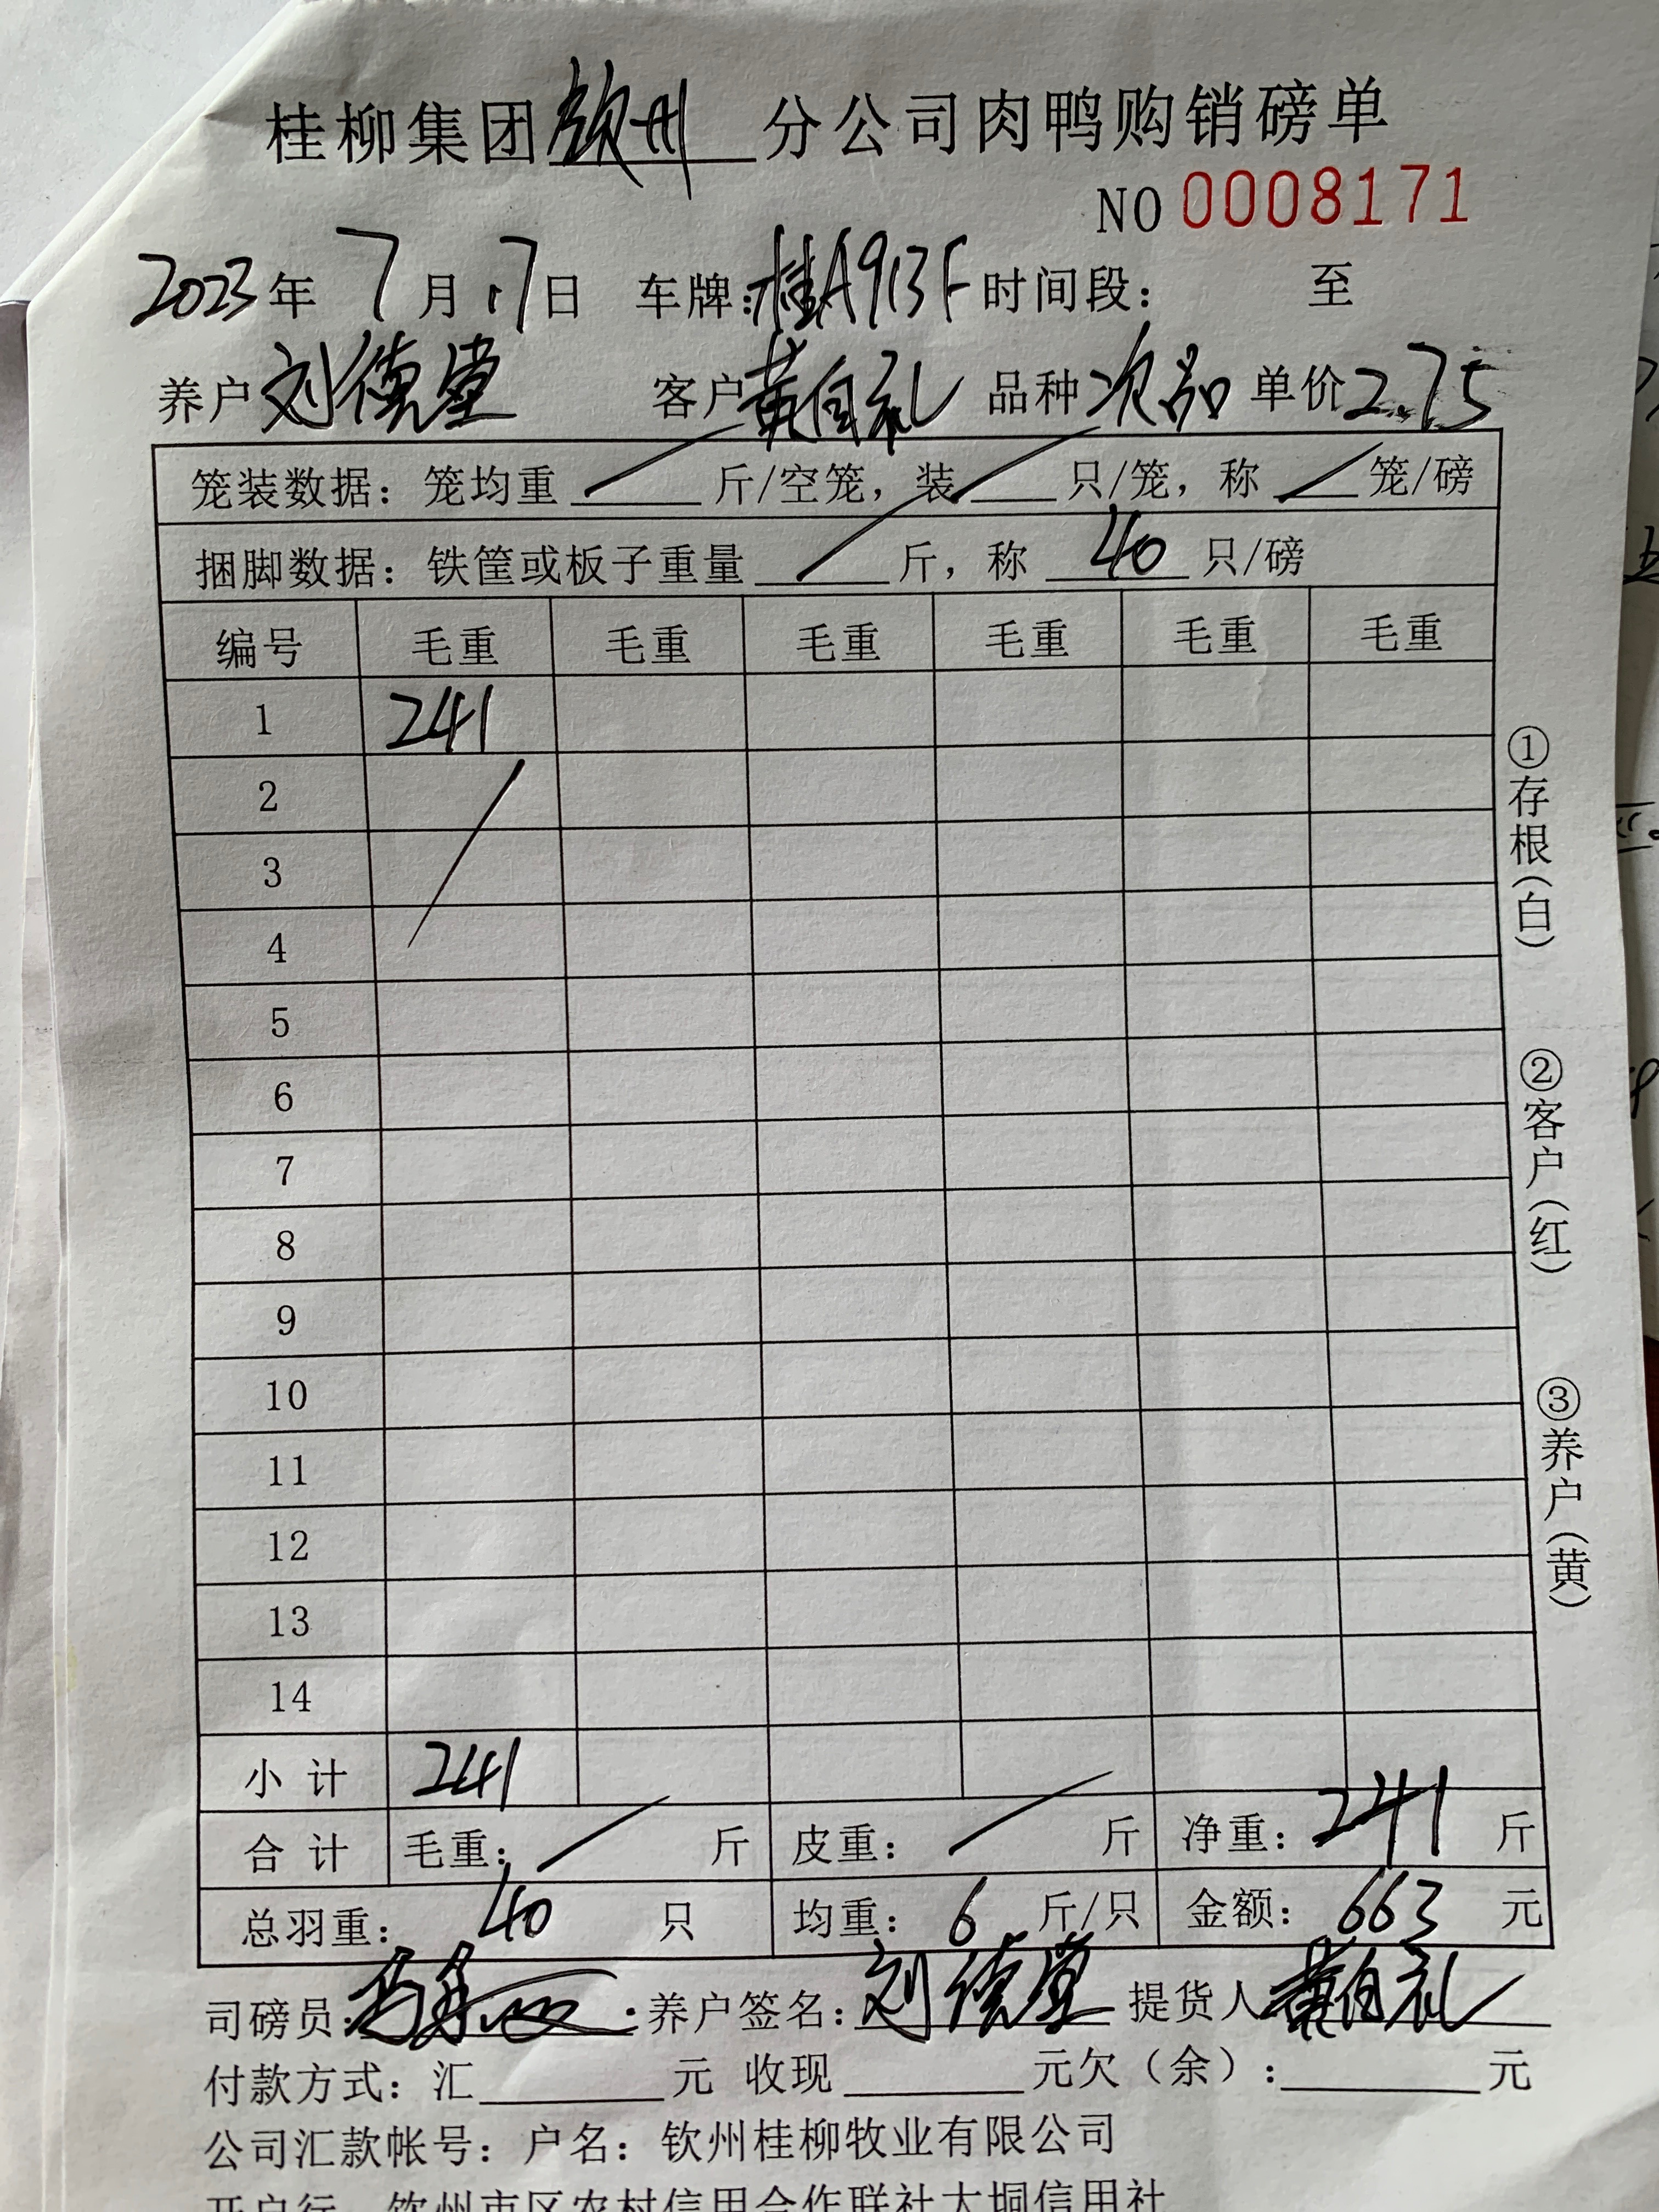 桂柳集团钦州分公司肉鸭购销磅单
NO 0008171
2023年 7月17日 车牌:桂A913F 时间段: 至
养户 刘德莹 客户 黄自礼 品种 次品 单价 2.75
笼装数据: 笼均重 / 斤/空笼, 装 / 只/笼, 称 / 笼/磅
捆脚数据: 铁筐或板子重量 / 斤, 称 40 只/磅
编号 毛重 毛重 毛重 毛重 毛重 毛重
1 241
2
3
4
5
6
7
8
9
10
11
12
13
14
小计 241
合计 毛重: / 斤 皮重: / 斤 净重: 241 斤
总羽重: 40 只 均重: 6 斤/只 金额: 663 元
司磅员: 养户签名: 刘德莹 提货人 黄自礼
付款方式: 汇 元 收现 元欠(余): 元
公司汇款帐号: 户名: 钦州桂柳牧业有限公司
开户行 钦州市区农村信用合作联社大垌信用社
①存根(白)
②客户(红)
③养户(黄)